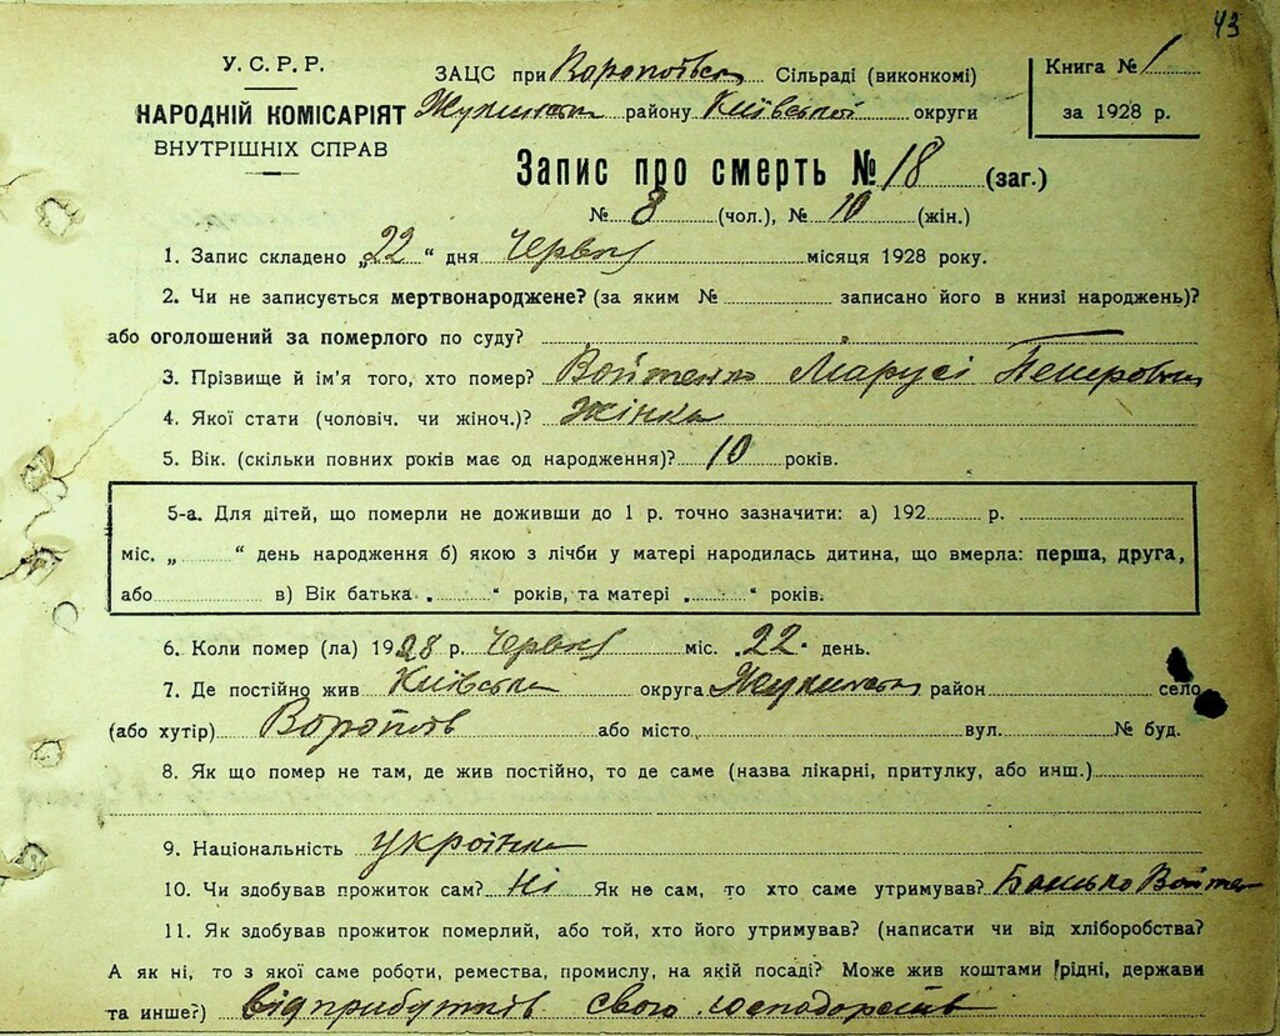 43
У. С. Р. Р.
НАРОДНІЙ КОМІСАРІЯТ
ВНУТРІШНІХ СПРАВ
ЗАЦС при Воропаївськ Сільраді (виконкомі)
району Київської округи
Книга № 1
за 1928 р.
Запис про смерть № 18 (заг.)
№ 8 (чол.), № 10 (жін.)
1. Запис складено „22“ дня Червня місяця 1928 року.
2. Чи не записується мертвонароджене? (за яким № записано його в книзі народжень)?
або оголошений за померлого по суду?
3. Прізвище й ім'я того, хто помер? Войтенко Марусі Петровни
4. Якої стати (чоловіч. чи жіноч.)? жінка
5. Вік. (скільки повних років має од народження)? 10 років.
5-а. Для дітей, що померли не доживши до 1 р. точно зазначити: а) 192 р.
міс. „ “ день народження б) якою з лічби у матері народилась дитина, що вмерла: перша, друга,
або в) Вік батька „ “ років, та матері „ “ років.
6. Коли помер (ла) 1928 р. Червня міс. „22“ день.
7. Де постійно жив Київська округа район село
(або хутір) Воропаїв або місто вул. № буд.
8. Як що помер не там, де жив постійно, то де саме (назва лікарні, притулку, або инш.)
9. Національність українка
10. Чи здобував прожиток сам? Ні Як не сам, то хто саме утримував? Батько Войтен
11. Як здобував прожиток померлий, або той, хто його утримував? (написати чи від хліборобства?
А як ні, то з якої саме роботи, ремества, промислу, на якій посаді? Може жив коштами рідні, держави
та инше?) від прибутків свого господарств